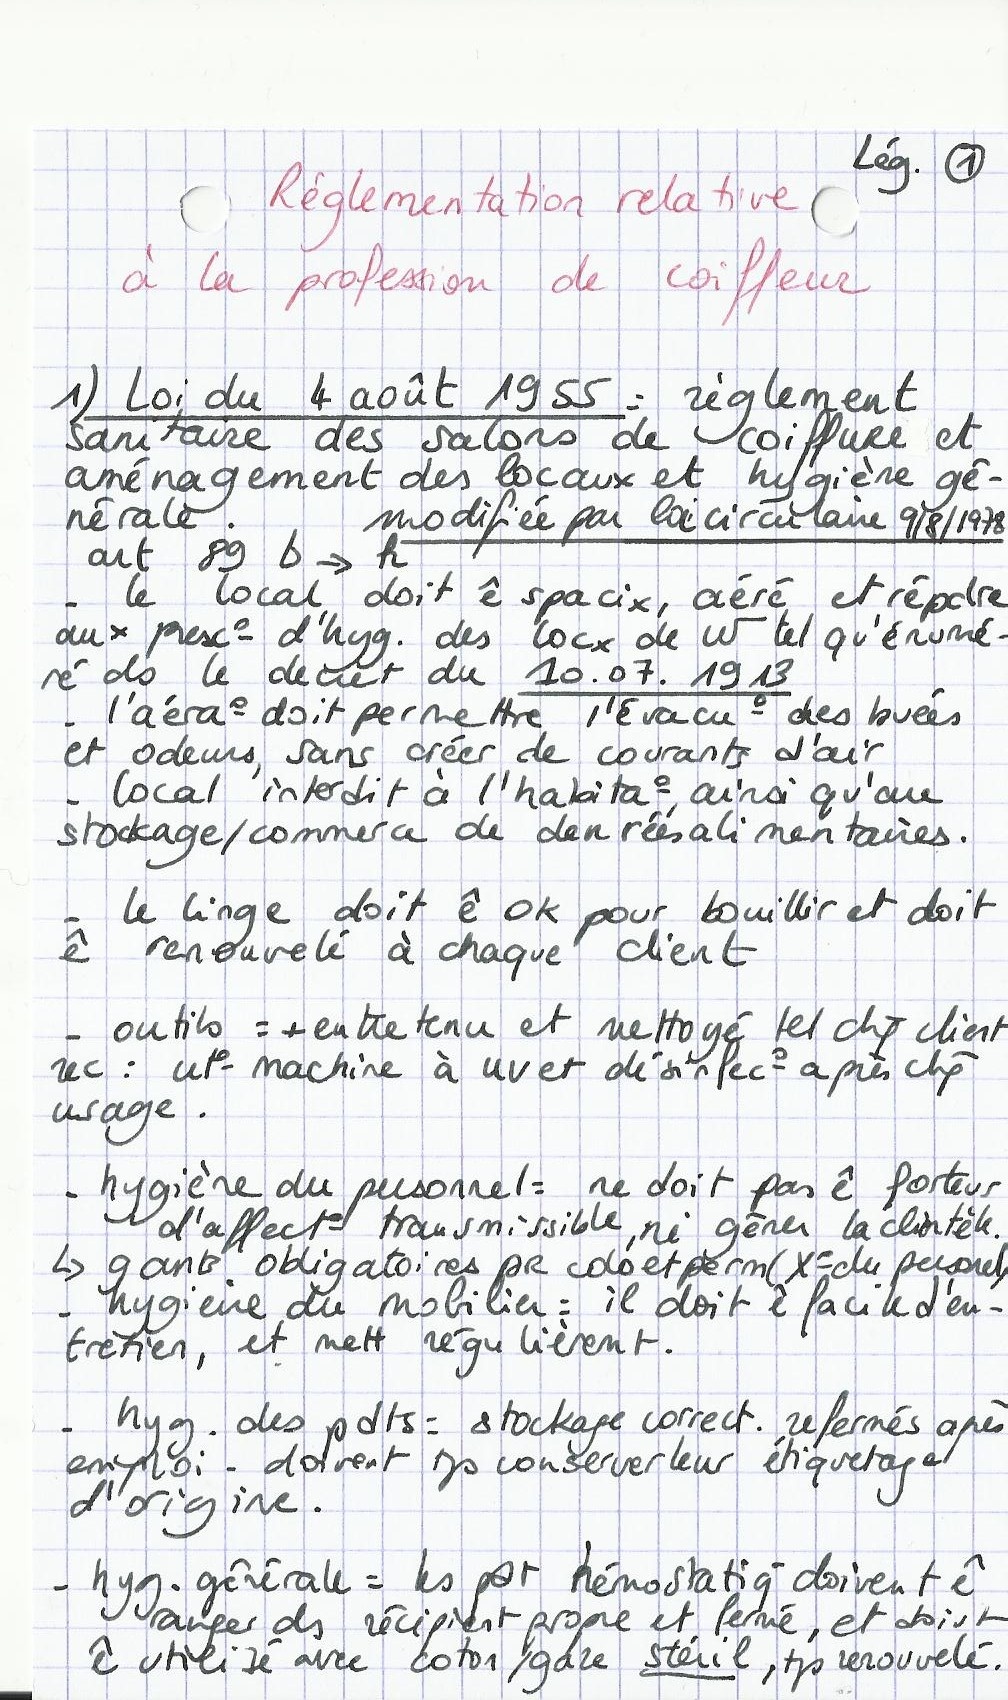 Lég. ①
Réglementation relative
à la profession de coiffeur
1) Loi du 4 août 1955 = règlement
sanitaire des salons de coiffure et
aménagement des locaux et hygiène gé-
nérale. modifiée par loi circulaire 9/8/1978
art 89 b → h
- le local doit ê spacix, aéré et répdre
aux presc° d'hyg. des locx de W tel qu'énumé-
ré ds le decret du 10.07.1913
- l'aéra° doit permettre l'évacu° des buées
et odeurs, sans créer de courants d'air
- local interdit à l'habita°, ainsi qu'au
stockage/commerce de denréés alimentaires.
- le linge doit ê ok pour bouillir et doit
ê renouvelé à chaque client
- outils = + entretenu et nettoyé tel chq client
rec : ut° machine à uv et désinfec° après chq
usage.
- hygiène du personnel = ne doit pas ê porteur
d'affect° transmissible, ni gêner la clientèle.
↳ gants obligatoires pr colo et perm (X° du personnel)
- hygiène du mobilier = il doit ê facile d'en-
tretien, et nett régulièrent.
- hyg. des pdts = stockage correct. refermés après
emploi - doivent tjs conserver leur étiquetage
d'origine.
- hyg. générale = les pdt hémostatiq doivent ê
ranger ds récipient propre et fermé, et doivt
ê utilisé avec coton/gaze stéril, tjs renouvelé.